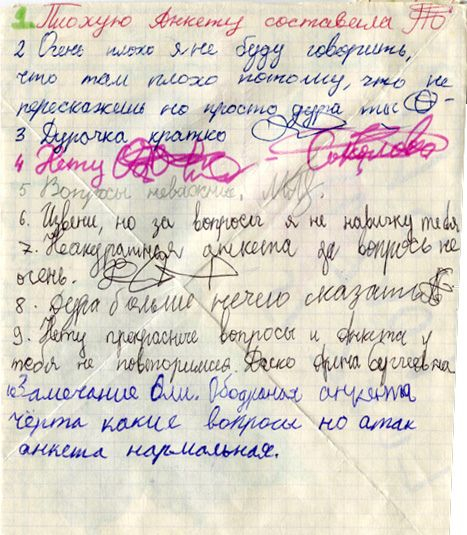 1. Плохую Анкету составела
2 Очень плохо я не буду говорить,
что там плохо потому, что не
перескажешь но просто дура ты
3 Дурочка кратко
4 Нету Соколова
5 Вопросы неважние.
6. Извени, но за вопросы я не навичу тебя
7. Неакуратная анкета да вопросы не
очень.
8. Дура больше нечего сказать
9. Нету прекрасние вопросы и анкета у
тебя не повторимая
Замечание Оли. Ободраная анкента
чёрта какие вопросы но атак
анкета нармальная.